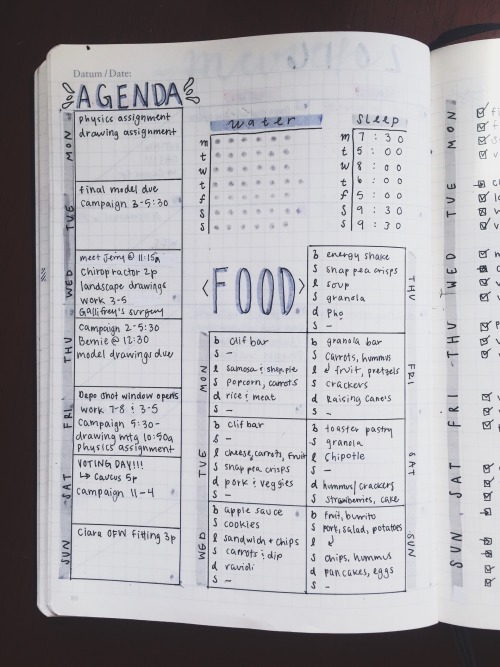 Datum / Date:
AGENDA
MON
physics assignment
drawing assignment
TUE
final model due
campaign 3-5:30
WED
meet Jerry @ 11:15a
Chiropractor 2p
landscape drawings
work 3-5
Gallifrey's surgery
THU
Campaign 2-5:30
Bernie @ 12:30
model drawings due
FRI
Depo shot window opens
work 7-8 & 3-5
Campaign 5:30-
drawing mtg 10:50a
Physics assignment
SAT
VOTING DAY!!!
↳ Caucus 5p
Campaign 11-4
SUN
Ciara OFW fitting 3p
water
m
t
w
t
f
s
s
Sleep
m 7:30
t 5:00
w 8:00
t 6:00
f 5:00
s 9:30
s 9:30
<FOOD>
MON
b clif bar
s -
l samosa & shep. pie
s popcorn, carrots
d rice & meat
s -
TUE
b clif bar
s -
l cheese, carrots, fruit
s snap pea crisps
d pork & veggies
s -
WED
b apple sauce
s cookies
l sandwich + chips
s carrots & dip
d ravioli
s -
THU
b energy shake
s snap pea crisps
l soup
s granola
d pho
s -
FRI
b granola bar
s carrots, hummus
l fruit, pretzels
s crackers
d Raising Cane's
s -
SAT
b toaster pastry
s granola
l Chipotle
s -
d hummus/crackers
s strawberries, cake
SUN
b fruit, burrito
s pork, salad, potatoes
l
s chips, hummus
d pancakes, eggs
s -
MON
TUE
WED
THU
FRI
SAT
SUN